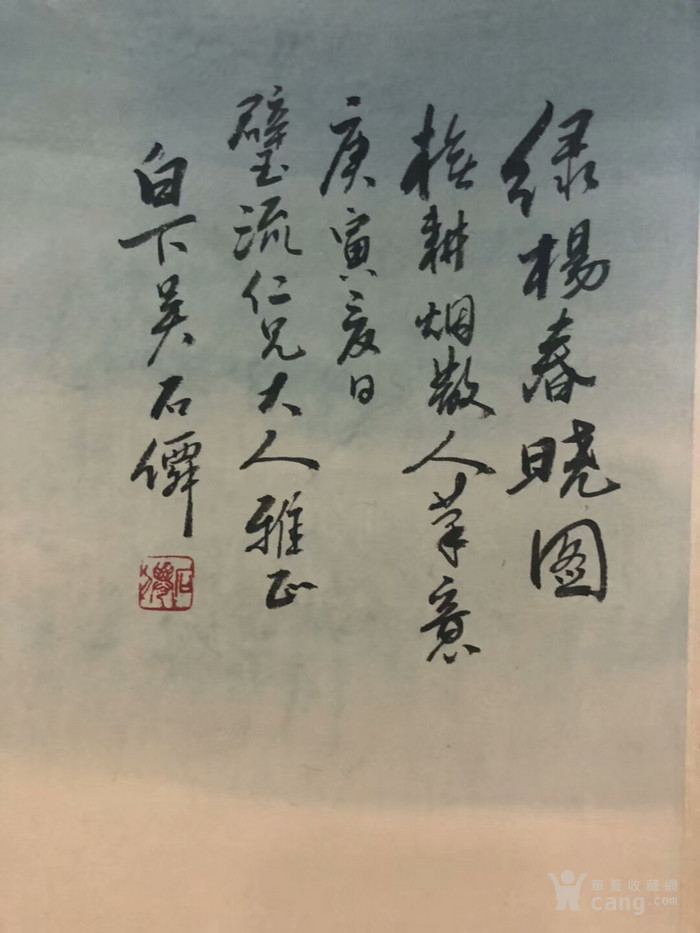 绿楊春晓图
橅耕烟散人笔意
庚寅夏日
璧流仁兄大人雅正
白下吴石僊
石僊
華夏收藏網
cang.com